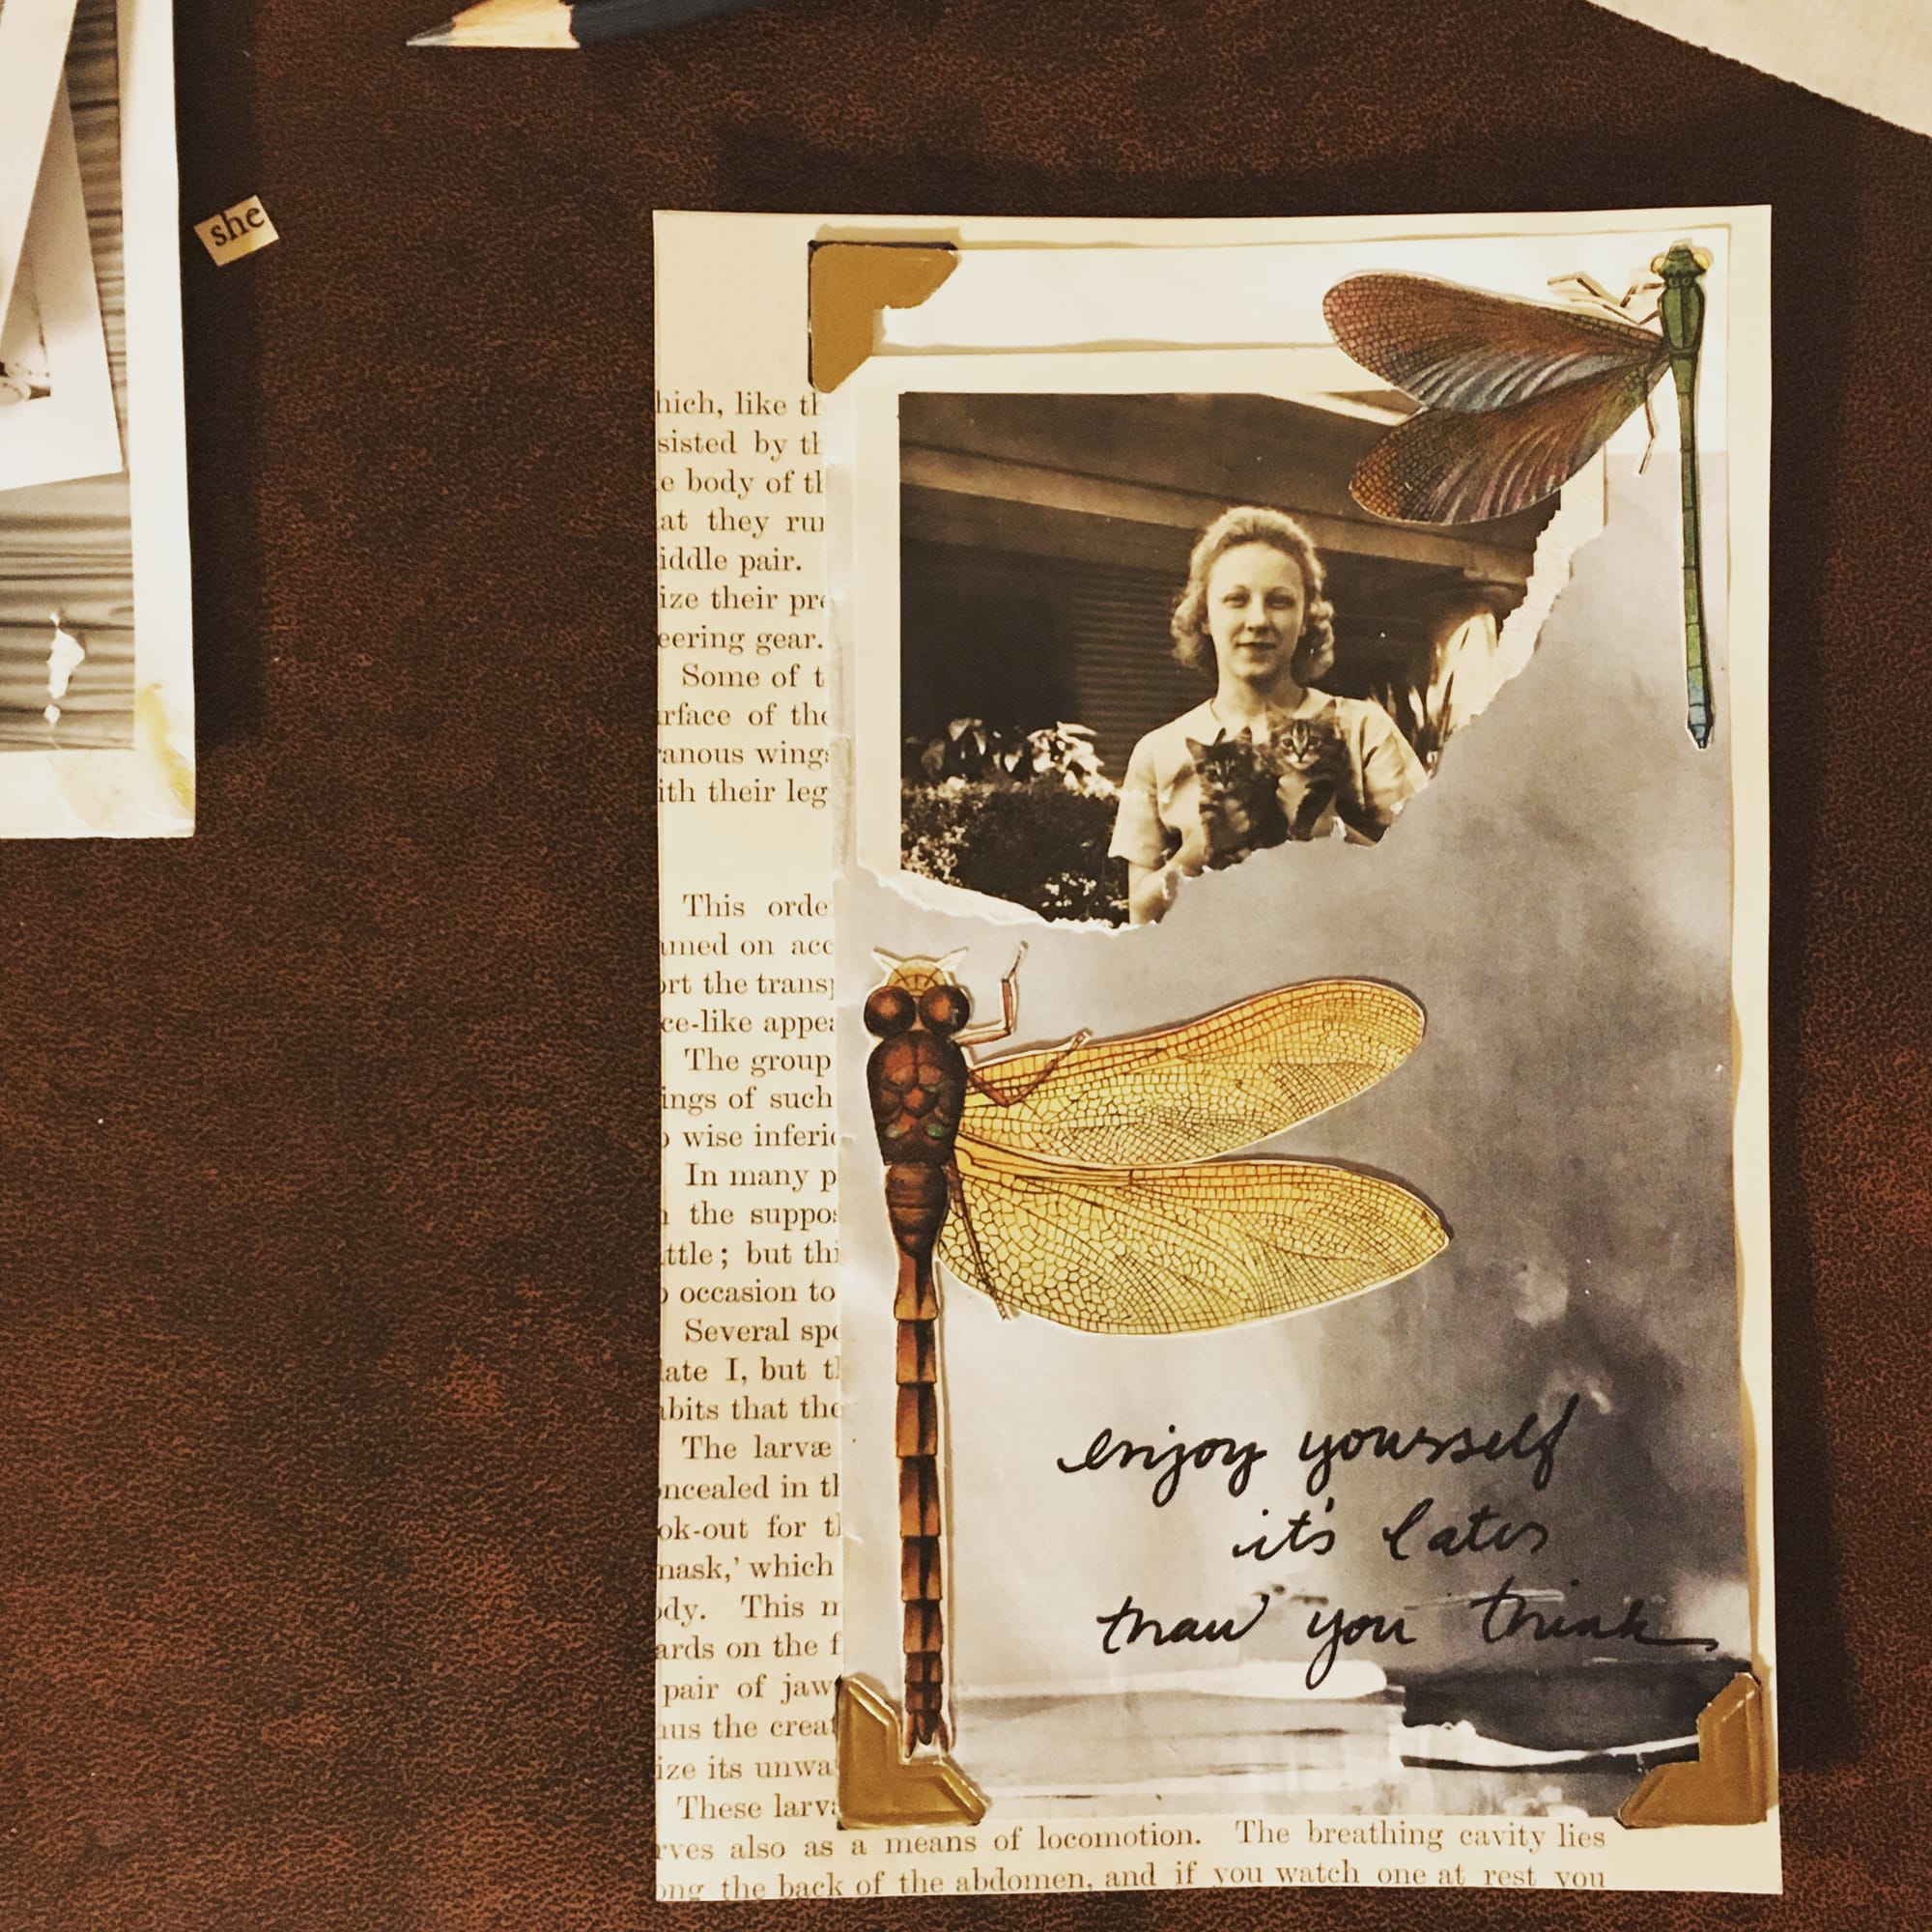 she
hich, like th
sisted by th
e body of th
at they run
iddle pair.
ize their pre
eering gear.
Some of t
rface of the
ranous wings
ith their leg
This orde
amed on acc
ort the transp
ce-like appea
The group
ings of such
o wise inferio
In many p
n the suppos
ttle ; but thi
o occasion to
Several spe
late I, but th
abits that the
The larvæ
oncealed in th
ok-out for th
mask,' which
ody. This m
ards on the f
pair of jaw
hus the creat
ize its unwa
These larva
rves also as a means of locomotion. The breathing cavity lies
ong the back of the abdomen, and if you watch one at rest you
enjoy yourself
it's later
than you think